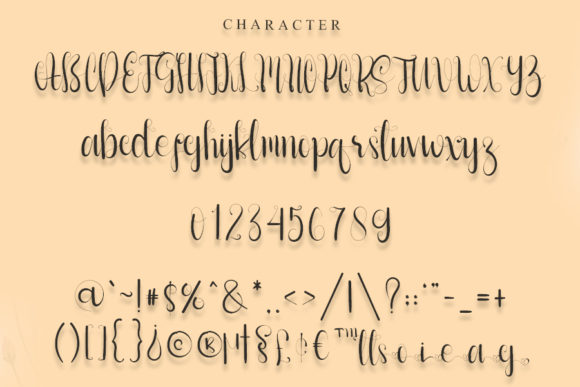 CHARACTER
ABCDEFGHIJKLMNOPQRSTUVWXYZ
abcdefghijklmnopqrstuvwxyz
0123456789
@`~!#$%^&*.,<>/|\?:;'"-_=+
()[]{}¿©®µ¶§£¢€™ll s o i e a g